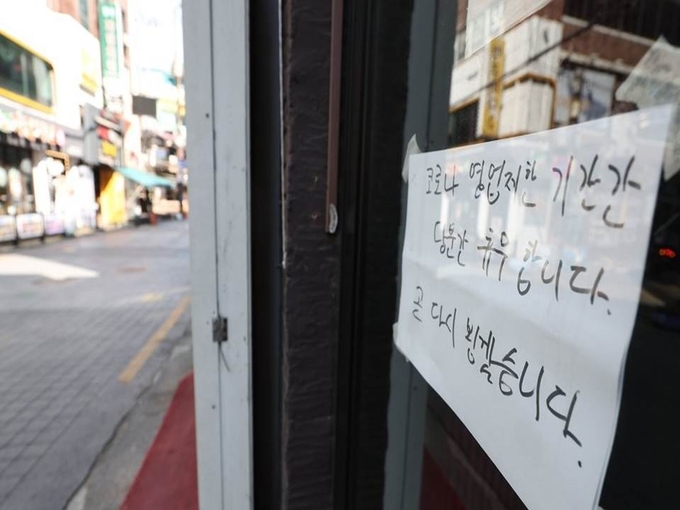 코로나 영업제한 기간간
당분간 휴무합니다.
곧 다시 뵙겠습니다.